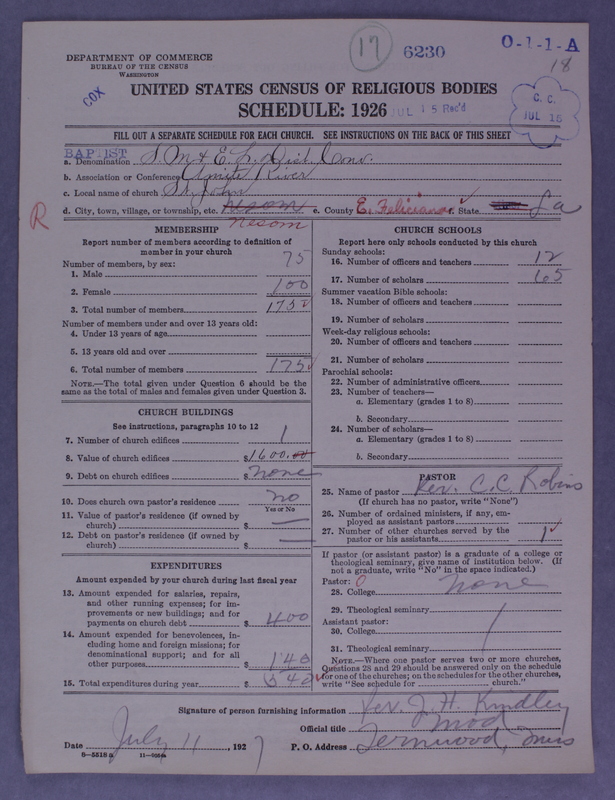 17 6230 O-1-1-A
18
DEPARTMENT OF COMMERCE
BUREAU OF THE CENSUS
WASHINGTON
COX
UNITED STATES CENSUS OF RELIGIOUS BODIES
SCHEDULE: 1926
JUL 15 Rec'd
C. C.
JUL 15
FILL OUT A SEPARATE SCHEDULE FOR EACH CHURCH. SEE INSTRUCTIONS ON THE BACK OF THIS SHEET
BAPTIST
a. Denomination S. M & E. L. Dist. Conv.
b. Association or Conference Amite River
c. Local name of church St. John
d. City, town, village, or township, etc. Nesom e. County E. Feliciana f. State La
R Nesom
MEMBERSHIP
Report number of members according to definition of
member in your church
Number of members, by sex:
1. Male 75
2. Female 100
3. Total number of members 175
Number of members under and over 13 years old:
4. Under 13 years of age
5. 13 years old and over
6. Total number of members 175
NOTE.—The total given under Question 6 should be the
same as the total of males and females given under Question 3.
CHURCH BUILDINGS
See instructions, paragraphs 10 to 12
7. Number of church edifices 1
8. Value of church edifices $1600.00
9. Debt on church edifices $ none
10. Does church own pastor's residence no
Yes or No
11. Value of pastor's residence (if owned by
church) $ —
12. Debt on pastor's residence (if owned by
church) $ —
EXPENDITURES
Amount expended by your church during last fiscal year
13. Amount expended for salaries, repairs,
and other running expenses; for im-
provements or new buildings; and for
payments on church debt $ 400
14. Amount expended for benevolences, in-
cluding home and foreign missions; for
denominational support; and for all
other purposes $ 140
15. Total expenditures during year $ 540
CHURCH SCHOOLS
Report here only schools conducted by this church
Sunday schools:
16. Number of officers and teachers 12
17. Number of scholars 65
Summer vacation Bible schools:
18. Number of officers and teachers
19. Number of scholars
Week-day religious schools:
20. Number of officers and teachers
21. Number of scholars
Parochial schools:
22. Number of administrative officers
23. Number of teachers—
a. Elementary (grades 1 to 8)
b. Secondary
24. Number of scholars—
a. Elementary (grades 1 to 8)
b. Secondary
PASTOR
25. Name of pastor Rev. C. C. Robins
(If church has no pastor, write "None")
26. Number of ordained ministers, if any, em-
ployed as assistant pastors
27. Number of other churches served by the
pastor or his assistants 1
If pastor (or assistant pastor) is a graduate of a college or
theological seminary, give name of institution below. (If
not a graduate, write "No" in the space indicated.)
Pastor: 0
28. College none
29. Theological seminary
Assistant pastor:
30. College
31. Theological seminary
NOTE.—Where one pastor serves two or more churches,
Questions 28 and 29 should be answered only on the schedule
for one of the churches; on the schedules for the other churches,
write "See schedule for church."
Signature of person furnishing information Rev. J. H. Kindley
Official title Mod
Date July 11, 1927 P. O. Address Fernwood, Miss
8—5518a 11—9054